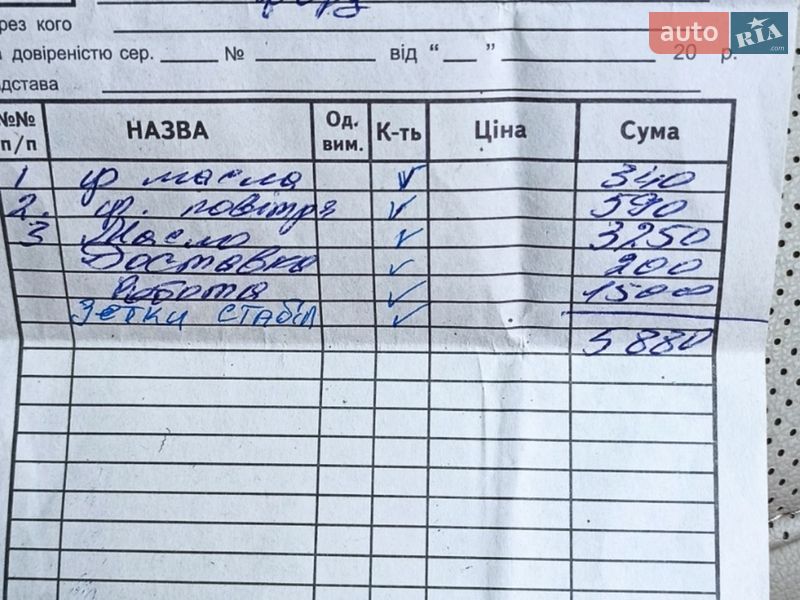 auto RIA .com
рез кого
довіреністю сер. № від “ ” 20 р.
дстава
№№ п/п НАЗВА Од. вим. К-ть Ціна Сума
1 ф масла ✓ 340
2. ф. повітря ✓ 590
3 Масло ✓ 3250
Доставка ✓ 200
Робота ✓ 1500
стабіл ✓
5880